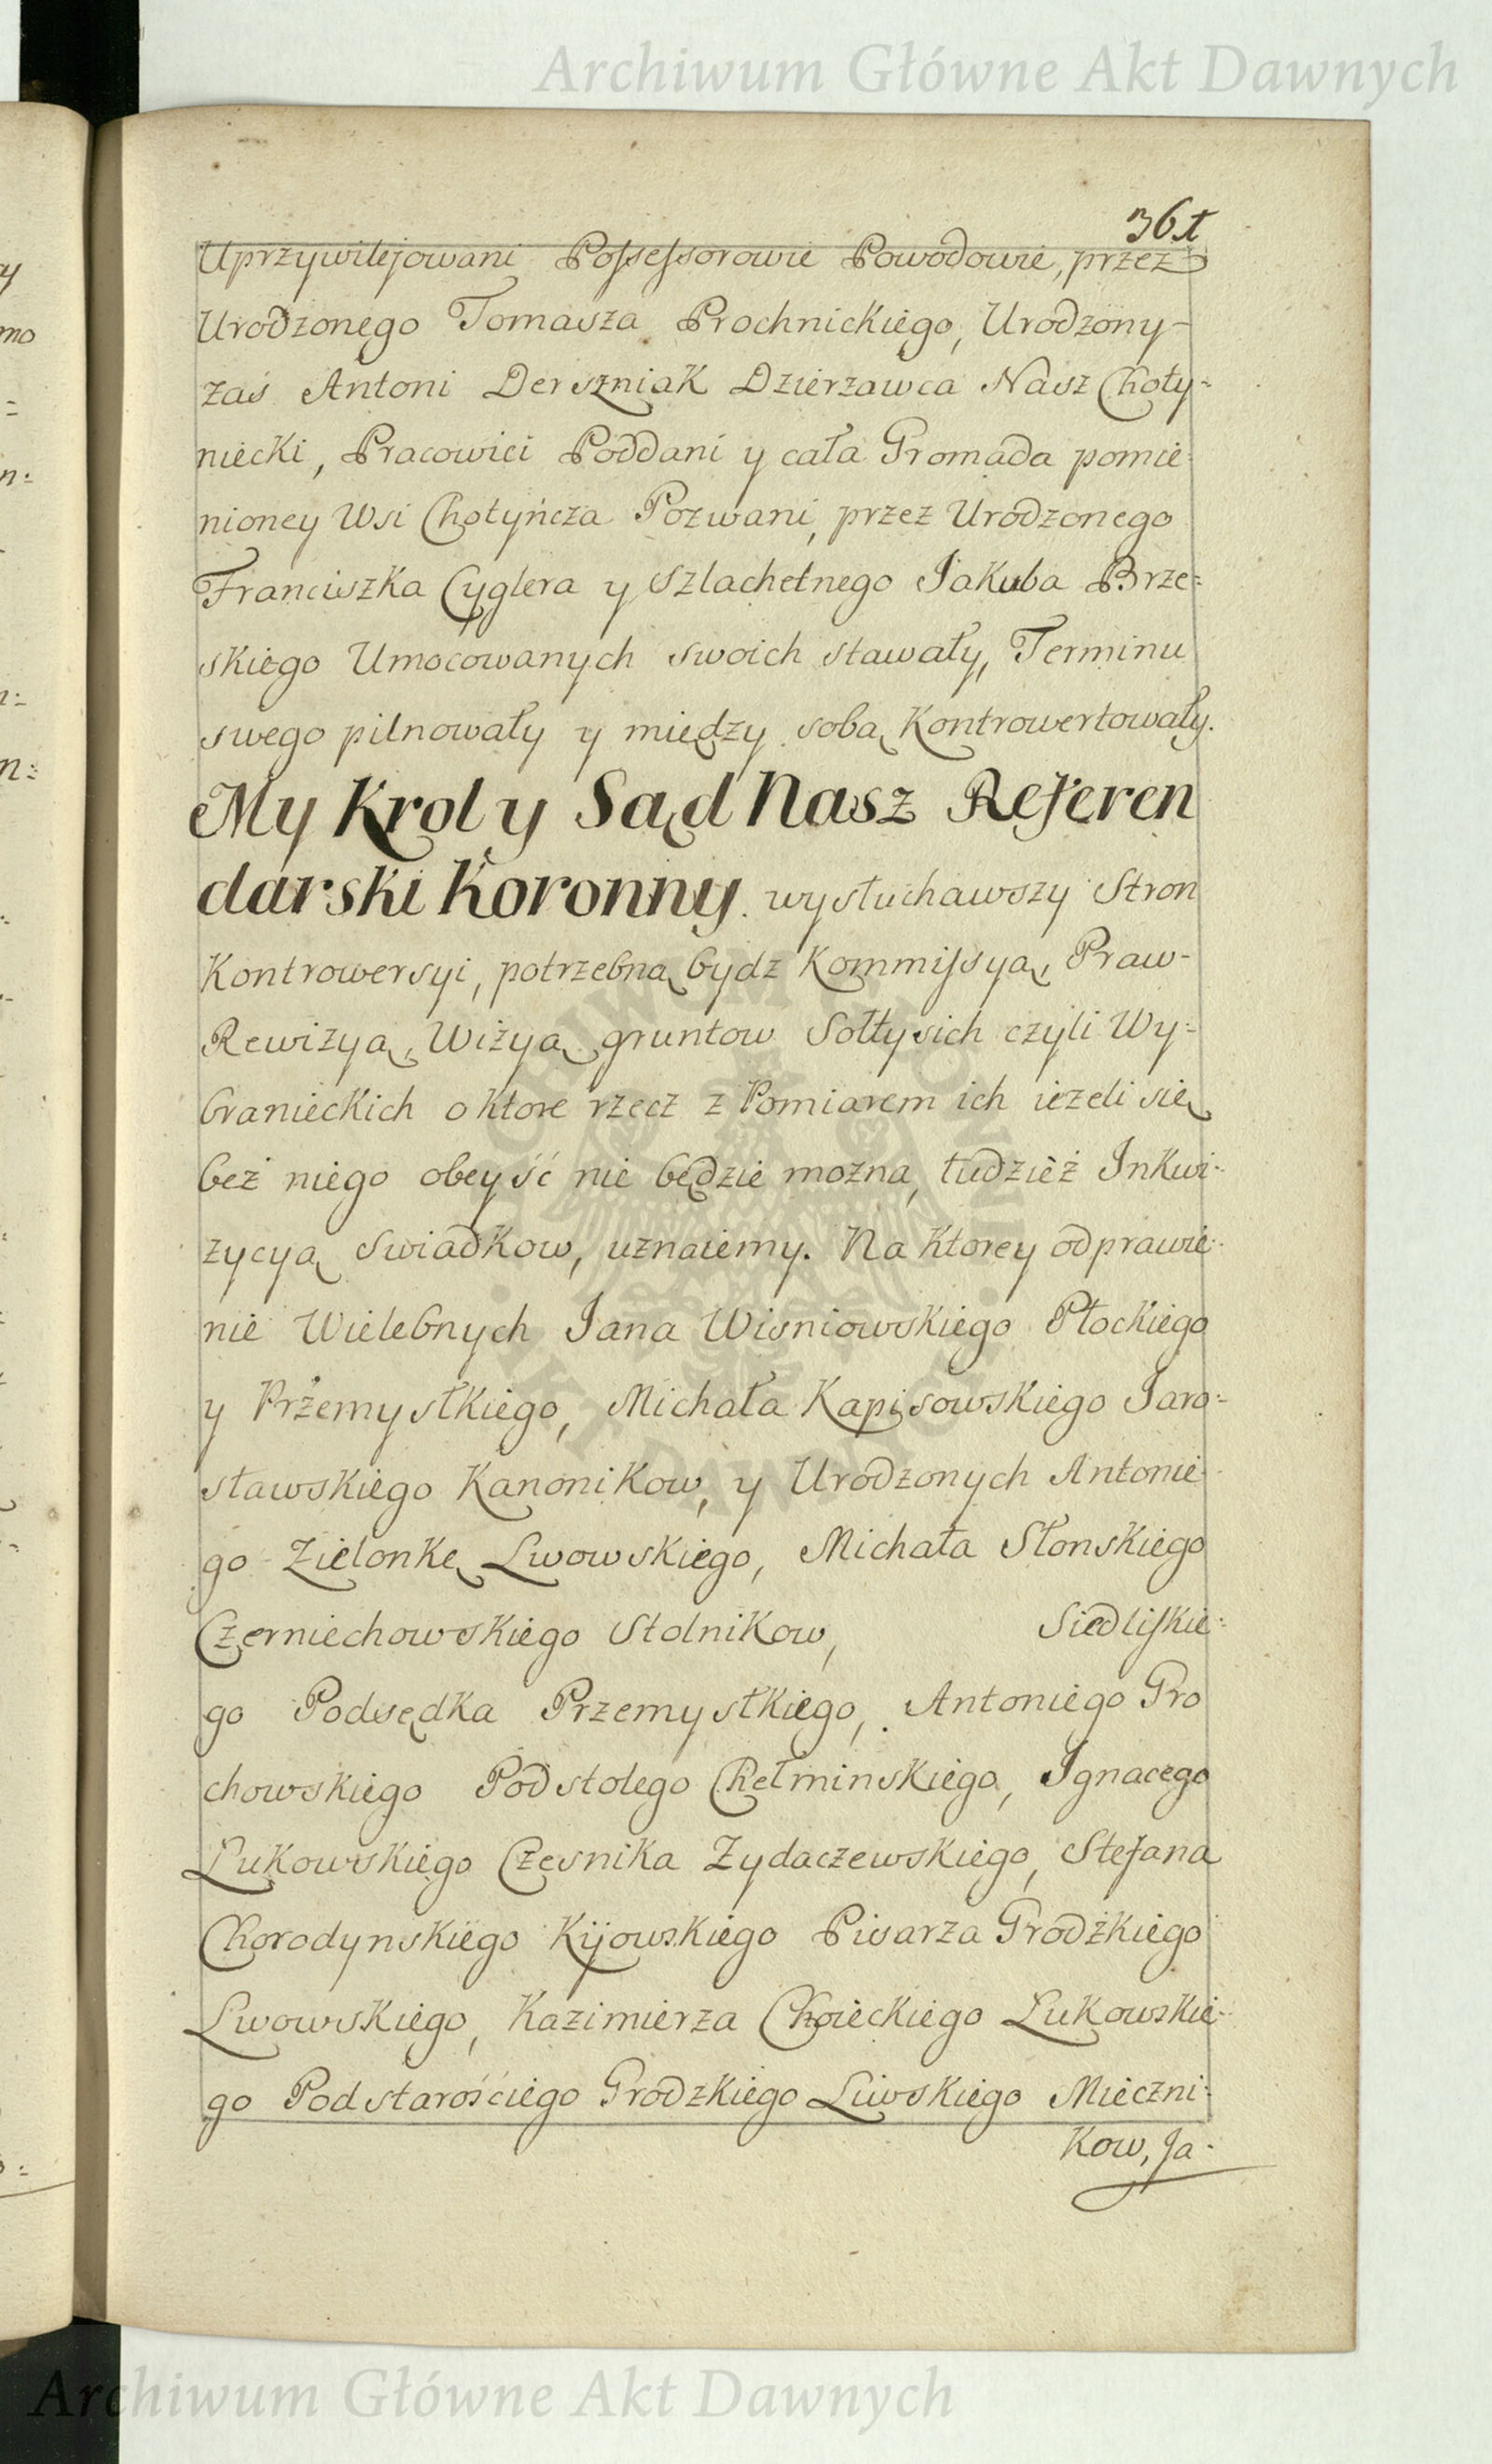 Archiwum Główne Akt Dawnych
361
Uprzywilejowani Possessorowie Powodowie, przez
Urodzonego Tomasza Prochnickiego, Urodzony-
zaś Antoni Derszniak Dzierzawca Nasz Choty-
niecki, Pracowici Poddani y cała Gromada pomie-
nioney Wsi Chotyńcza Pozwani, przez Urodzonego
Franciszka Cyglera y Szlachetnego Jakuba Brze-
skiego Umocowanych swoich stawały, Terminu
swego pilnowały y między sobą Kontrowertowały.
My Krol y Sąd Nasz Referen
darski Koronny. wysłuchawszy Stron
Kontrowersyi, potrzebną bydz Kommissyą, Praw-
Rewizyą, Wizyą gruntow Sołtysich czyli Wy-
branieckich o ktore rzecz z Pomiarem ich ieżeli się
bez niego obeyść nie będzie mozna, tudzież Inkwi-
zycyą Swiadkow, uznaiemy. Na ktorey odprawie-
nie Wielebnych Jana Wisniowskiego Płockiego
y Przemyslkiego, Michała Kapisowskiego Jaro-
sławskiego Kanonikow, y Urodzonych Antonie-
go Zielonkę Lwowskiego, Michała Słonskiego
Czerniechowskiego Stolnikow, Siedliskie-
go Podsędka Przemyslkiego, Antoniego Gro
chowskiego Podstolego Chełminskiego, Ignacego
Łukowskiego Czesnika Zydaczewskiego, Stefana
Chorodynskiego Kijowskiego Pisarza Grodzkiego
Lwowskiego, Kazimierza Choieckiego Łukowskie-
go Podstarościego Grodzkiego Liwskiego Mieczni-
kow, Ja-
Archiwum Główne Akt Dawnych